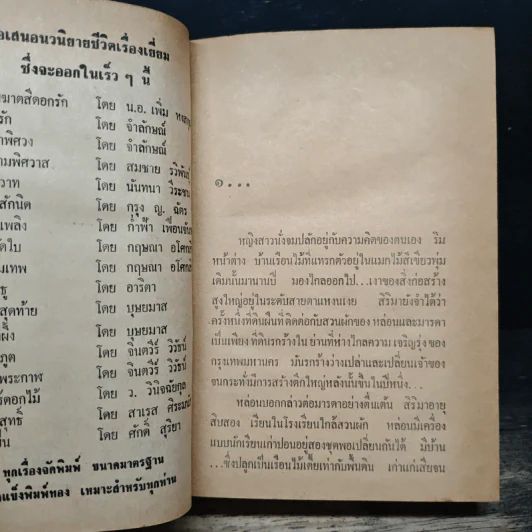 อเสนอนวนิยายชีวิตเรื่องเยี่ยม
ซึ่งจะออกในเร็ว ๆ นี้
ฆาตสีดอกรัก โดย น.อ. เพิ่ม
รัก โดย จำลักษณ์
าพิศวง โดย จำลักษณ์
ามพิศวาส โดย สมชาย
วาท โดย นันทนา
สักนิด โดย กรุง ญ. ฉัตร
เพลิง โดย
ดใบ โดย กฤษณา อโศก
มเทพ โดย กฤษณา อโศก
ชู โดย อาริตา
สุดท้าย โดย บุษยมาส
ผึ้ง โดย บุษยมาส
ภูต โดย จินตวีร์ วิวัธน์
พระกาฬ โดย จินตวีร์ วิวัธน์
ร์ดอกไม้ โดย ว. วินิจฉัยกุล
สุทธิ์ โดย สาเรส
ขึ้น โดย ศักดิ์ สุริยา
ทุกเรื่องจัดพิมพ์ ขนาดมาตรฐาน
แข็งพิมพ์ทอง เหมาะสำหรับทุกท่าน
๑...
หญิงสาวนั่งจมปลักอยู่กับความคิดของตนเอง ริม
หน้าต่าง บ้านเรือนไม้ที่แทรกตัวอยู่ในแมกไม้สีเขียวทุ่ม
เดิมนั้นมานานปี มองไกลออกไป...เงาของสิ่งก่อสร้าง
สูงใหญ่อยู่ในระดับสายตาแหงนเงย สิริมายังจำได้ว่า
ครั้งหนึ่งที่ดินผืนที่ติดต่อกับสวนผักของ หล่อนและมารดา
เป็นเพียง ที่ดินรกร้างใน ย่านที่ห่างไกลความ เจริญรุ่งของ
กรุงเทพมหานคร มันรกร้างว่างเปล่าและเปลี่ยนเจ้าของ
จนกระทั่งมีการสร้างตึกใหญ่หลังนั้นขึ้นในปีหนึ่ง...
หล่อนบอกกล่าวต่อมารดาอย่างตื่นเต้น สิริมาอายุ
สิบสอง เรียนในโรงเรียนใกล้สวนผัก หล่อนมีเครื่อง
แบบนักเรียนเก่าปอนอยู่สองชุดพอเปลี่ยนกันได้ มีบ้าน
...ซึ่งปลูกเป็นเรือนไม้เตี้ยเท่ากับพื้นดิน เก่าแก่เสียจน